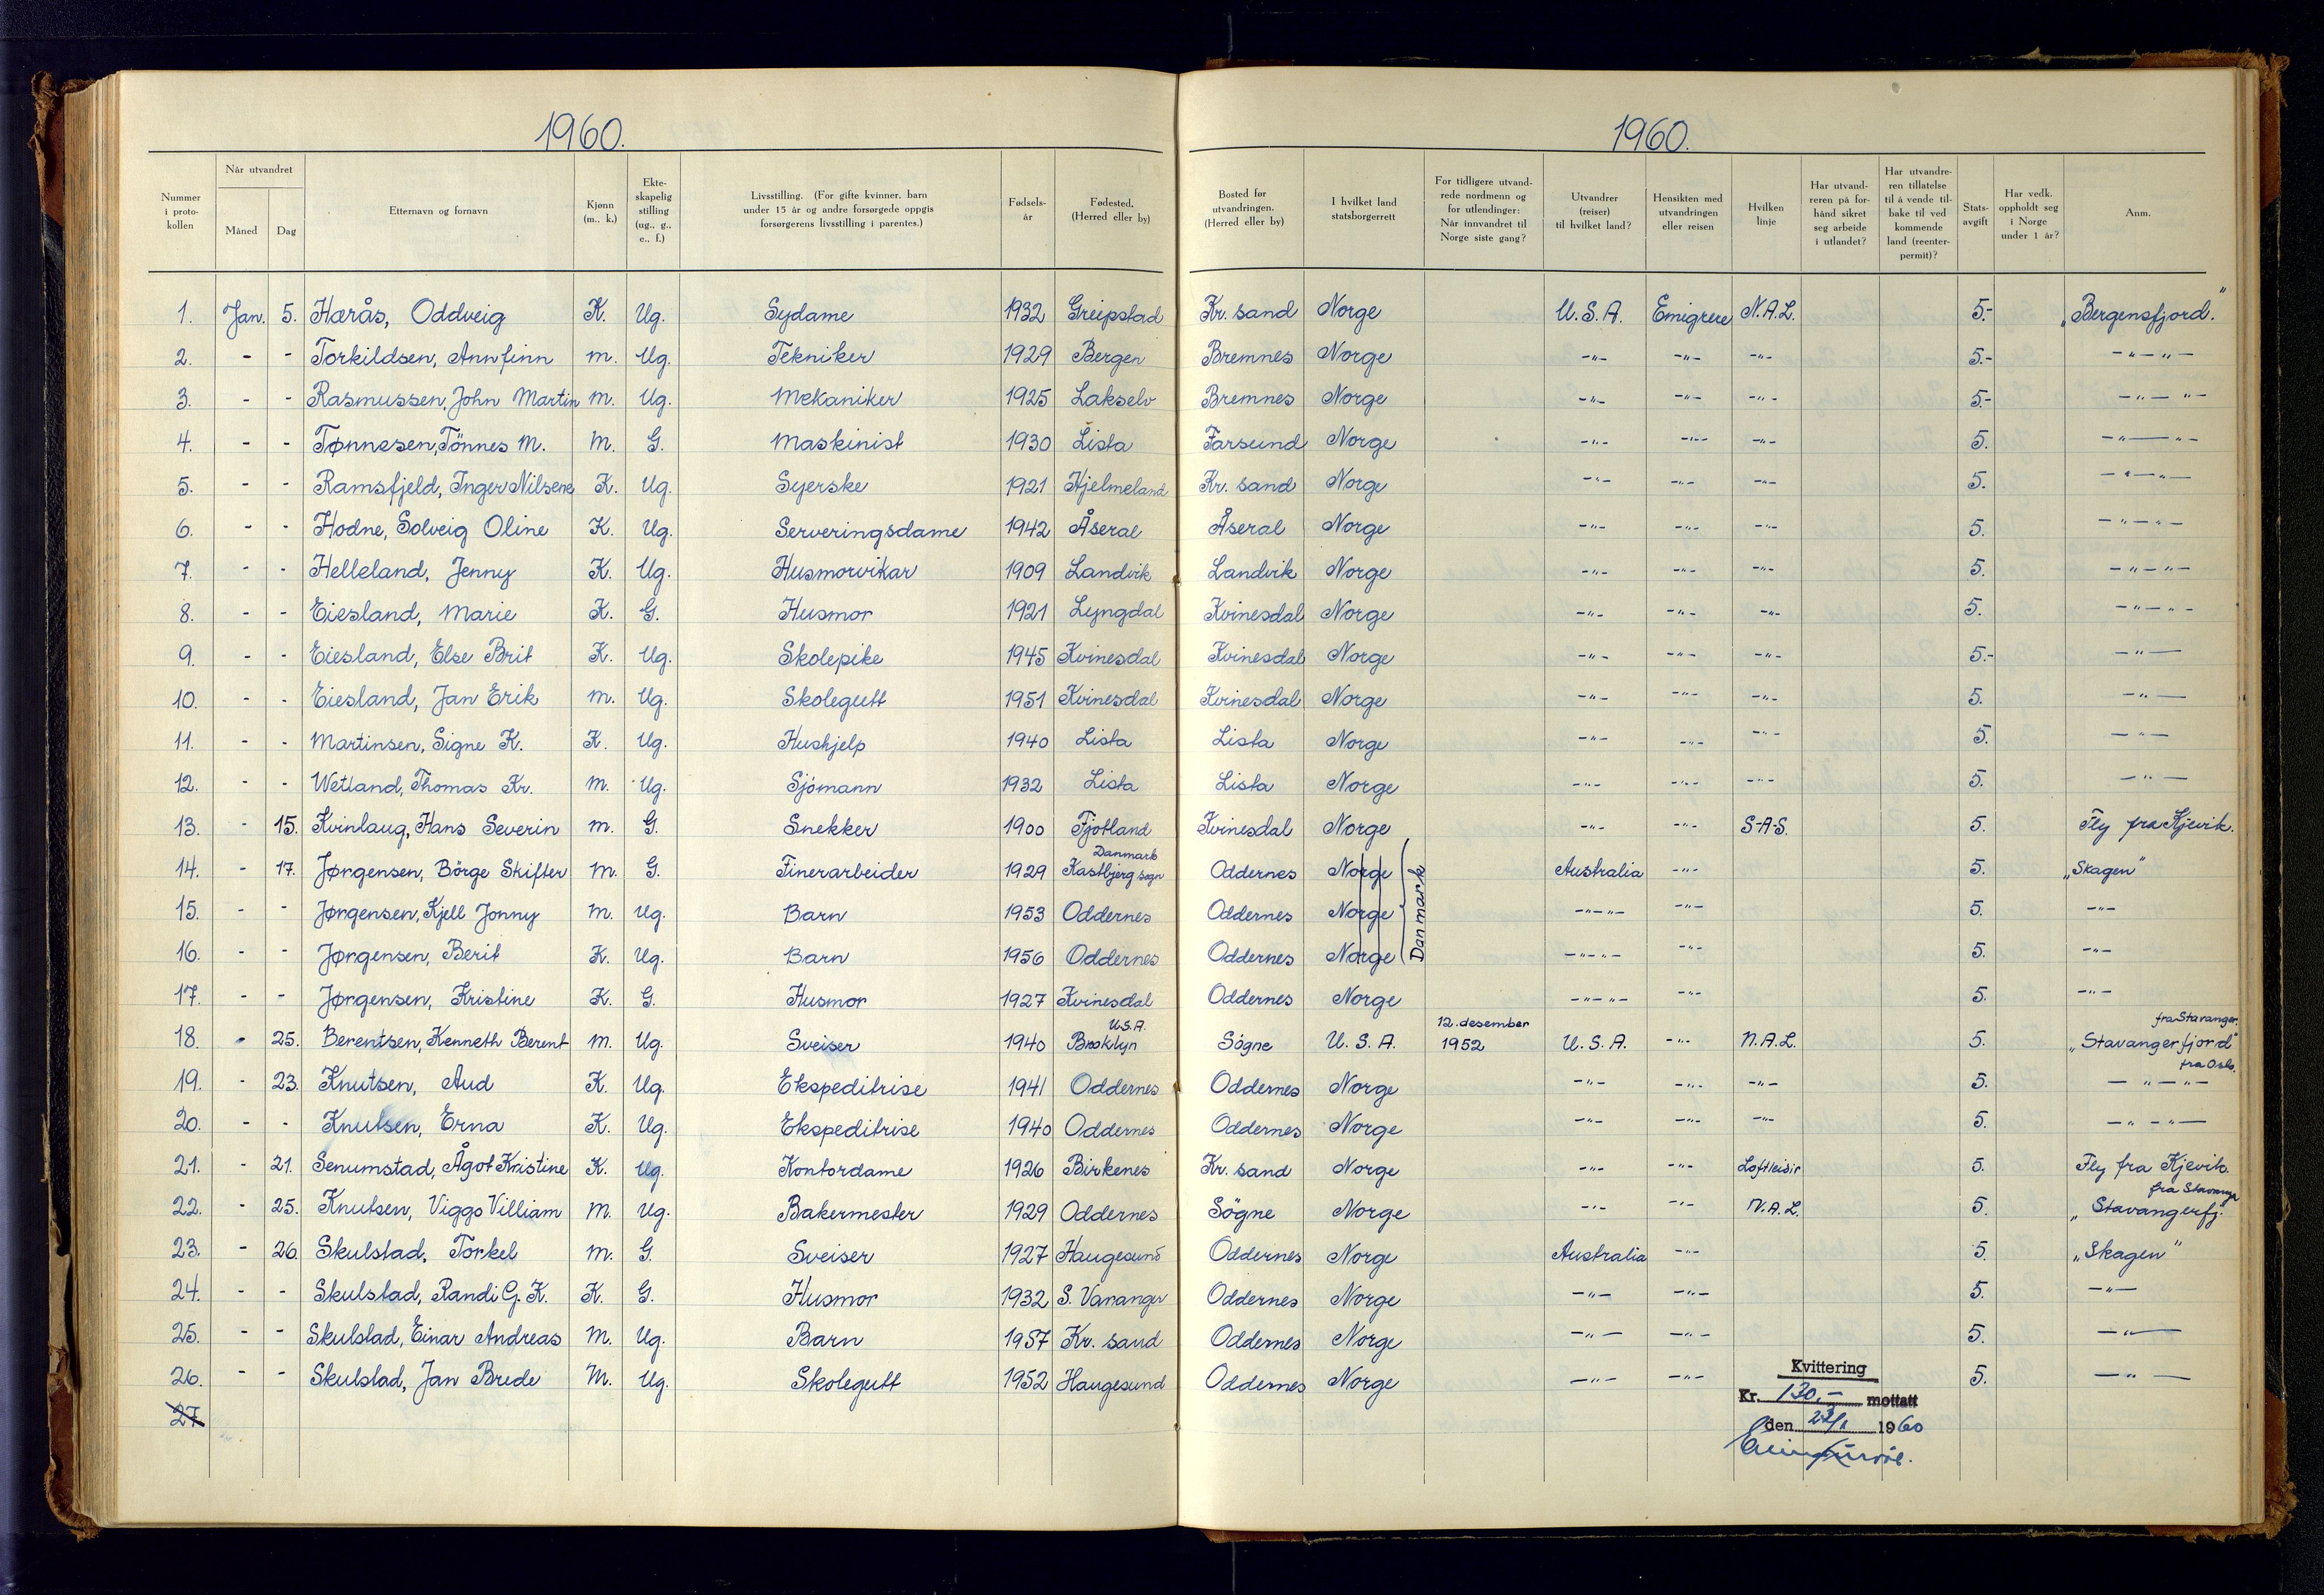 1960.
1960.
Nummer i proto-kollen | Når utvandret Måned | Dag | Etternavn og fornavn | Kjønn (m., k.) | Ekte-skapelig stilling (ug., g., e., f.) | Livsstilling. (For gifte kvinner, barn under 15 år og andre forsørgede oppgis forsørgerens livsstilling i parentes.) | Fødsels-år | Fødested. (Herred eller by) | Bosted før utvandringen. (Herred eller by) | I hvilket land statsborgerrett | For tidligere utvand-rede nordmenn og for utlendinger: Når innvandret til Norge siste gang? | Utvandrer (reiser) til hvilket land? | Hensikten med utvandringen eller reisen | Hvilken linje | Har utvand-reren på for-hånd sikret seg arbeide i utlandet? | Har utvandre-ren tillatelse til å vende til-bake til ved kommende land (reenter-permit)? | Stats-avgift | Har vedk. oppholdt seg i Norge under 1 år? | Anm.
1. Jan. 5. Hærås, Oddveig K. Ug. Sydame 1932 Greipstad Kr. sand Norge U.S.A. Emigrere N.A.L. 5.- „Bergensfjord."
2. - - Torkildsen, Annfinn m. Ug. Tekniker 1929 Bergen Bremnes Norge -"- -"- -"- 5.- -"-"-
3. - - Rasmussen, John Martin m. Ug. Mekaniker 1925 Lakselv Bremnes Norge -"- -"- -"- 5.- -"-"-
4. - - Tønnesen, Tönnes M. M. G. Maskinist 1930 Lista Farsund Norge -"- -"- -"- 5. -"-"-
5. - - Ramsfjeld, Inger Nilsene K. Ug. Syerske 1921 Hjelmeland Kr. sand Norge -"- -"- -"- 5. -"-"-
6. - - Hodne, Solveig Oline K. Ug. Serveringsdame 1942 Åseral Åseral Norge -"- -"- -"- 5. -"-"-
7. - - Helleland, Jenny K. Ug. Husmorvikar 1909 Landvik Landvik Norge -"- -"- -"- 5. -"-"-
8. - - Eiesland, Marie K. G. Husmor 1921 Lyngdal Kvinesdal Norge -"- -"- -"- 5. -"-"-
9. - - Eiesland, Else Brit K. Ug. Skolepike 1945 Kvinesdal Kvinesdal Norge -"- -"- -"- 5.- -"-
10. - - Eiesland, Jan Erik m. Ug. Skolegutt 1951 Kvinesdal Kvinesdal Norge -"- -"- -"- 5. -"-
11. - - Martinsen, Signe K. K. Ug. Hushjelp 1940 Lista Lista Norge -"- -"- -"- 5. -"-
12. - - Wetland, Thomas Kr. m. Ug. Sjömann 1932 Lista Lista Norge -"- -"- -"- 5. -"-
13. - 15. Kvinlaug, Hans Severin m. G. Snekker 1900 Fjotland Kvinesdal Norge -"- -"- S-A-S. 5. Fly fra Kjevik.
14. - 17. Jørgensen, Börge Skifter M. G. Finerarbeider 1929 Kastbjerg sogn Danmark Oddernes Norge Danmark Australia -"- 5. „Skagen"
15. - - Jørgensen, Kjell Jonny M. Ug. Barn 1953 Oddernes Oddernes Norge -"-"- -"- 5. -"-
16. - - Jørgensen, Berit K. Ug. Barn 1956 Oddernes Oddernes Norge -"-"- -"- 5. -"-
17. - - Jørgensen, Kristine K. G. Husmor 1927 Kvinesdal Oddernes Norge -"-"- -"- 5. -"-
18. - 25. Berentsen, Kenneth Berent M. Ug. Sveiser 1940 Brooklyn U.S.A. Sögne U.S.A. 12. desember 1952 U.S.A. -"- N.A.L. 5. „Stavangerfjord" fra Stavanger.
19. - 23. Knutsen, Aud K. Ug. Ekspeditrise 1941 Oddernes Oddernes Norge -"- -"- -"- 5. -"-"- fra Oslo.
20. - - Knutsen, Erna K. Ug. Ekspeditrise 1940 Oddernes Oddernes Norge -"- -"- -"- 5. -"-"-
21. - 21. Senumstad, Ågot Kristine K. Ug. Kontordame 1926 Birkenes Kr. sand Norge -"- -"- Loftleisir 5. Fly fra Kjevik.
22. - 25. Knutsen, Viggo Villiam M. Ug. Bakermester 1929 Oddernes Sögne Norge -"- -"- N.A.L. 5. „Stavangerfj." fra Stavanger
23. - 26. Skulstad, Torkel m. G. Sveiser 1927 Haugesund Oddernes Norge Australia -"- 5. „Skagen"
24. - - Skulstad, Randi G. K. K. G. Husmor 1932 S. Varanger Oddernes Norge -"- -"- 5. -"-
25. - - Skulstad, Einar Andreas M. Ug. Barn 1957 Kr. sand Oddernes Norge -"- -"- 5. -"-
26. - - Skulstad, Jan Brede M. Ug. Skolegutt 1952 Haugesund Oddernes Norge -"- -"- 5. -"-
27
Kvittering
Kr. 130,- mottatt
den 1960